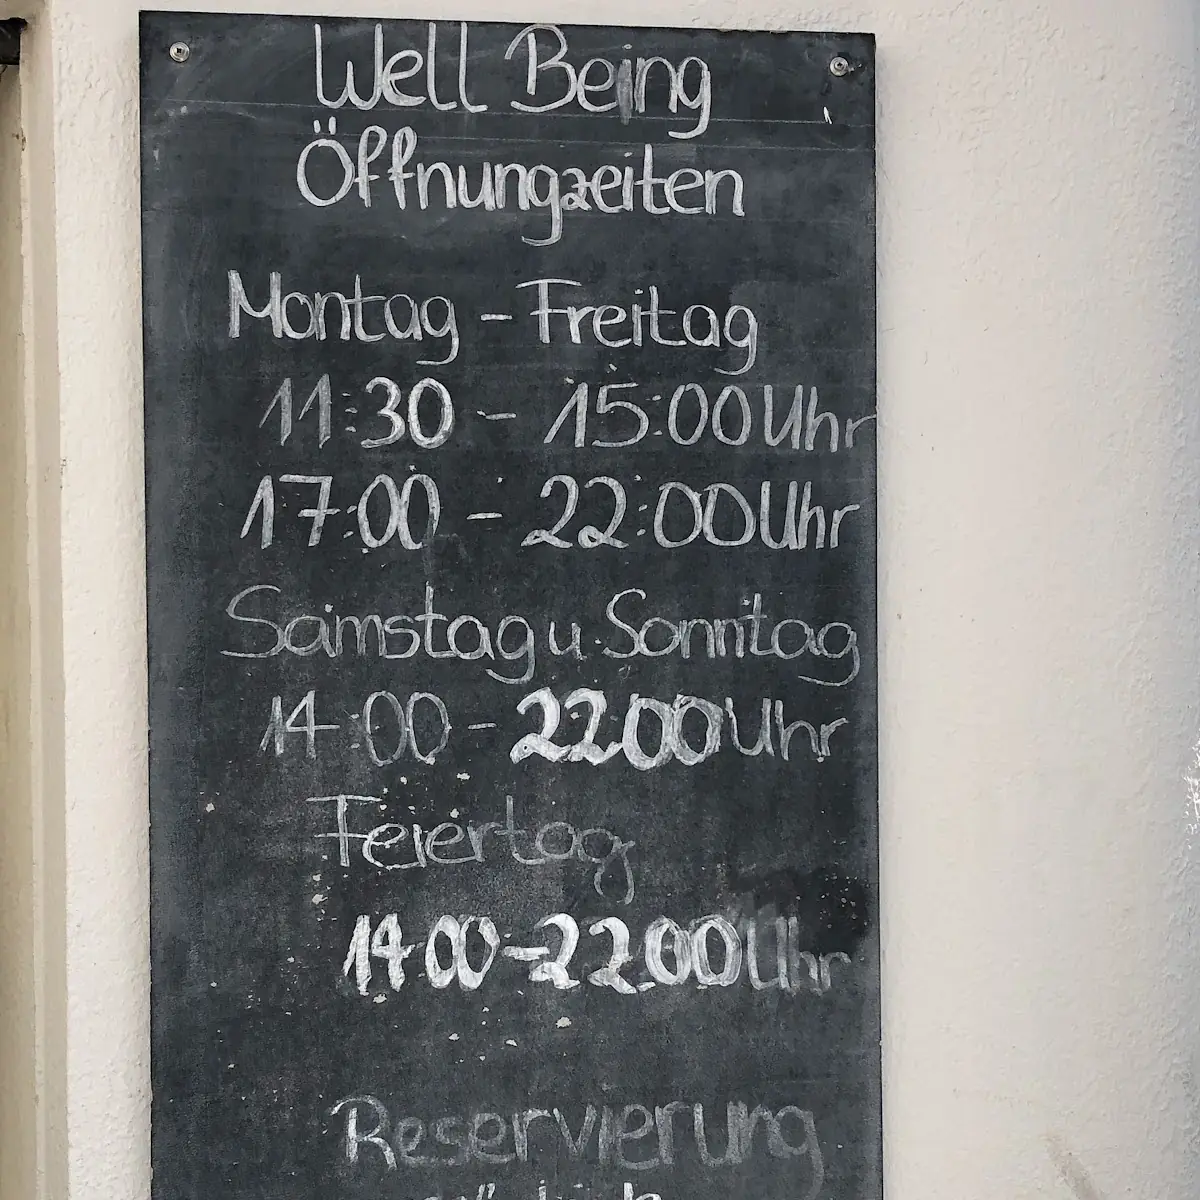 Well Being
Öffnungzeiten
Montag - Freitag
11:30 - 15:00 Uhr
17:00 - 22:00 Uhr
Samstag u. Sonntag
14:00 - 22 00 Uhr
Feiertag
14 00 - 22 00 Uhr
Reservierung